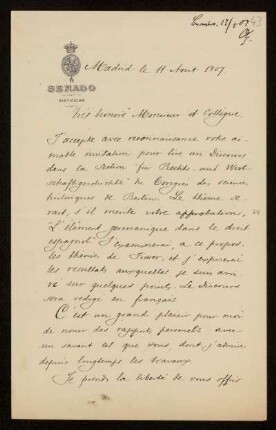 SENADO
PARTICULAR
Madrid le 11 Aout 1907
Très honoré Monsieur et Collègue
J'accepte avec reconnaissance votre ai-
mable invitation pour lire un Discours
dans la Section für Rechts- und Wirt-
schaftsgeschichte du Congrès des sciences
historiques de Berlin. Le thème se-
rait, s'il mérite votre approbation,
L'élément germanique dans le droit
espagnol. J'examinerai, a ce propos,
les théories de Ficker, et j'exposerai
les resultats auxquelles je suis arri-
vé sur quelques points. Le discours
sera redigé en français
C'est un grand plaisir pour moi
de nouer des rapports personels avec
un savant tel que vous dont j'admire
depuis longtemps les travaux.
Je prends la liberté de vous offrir